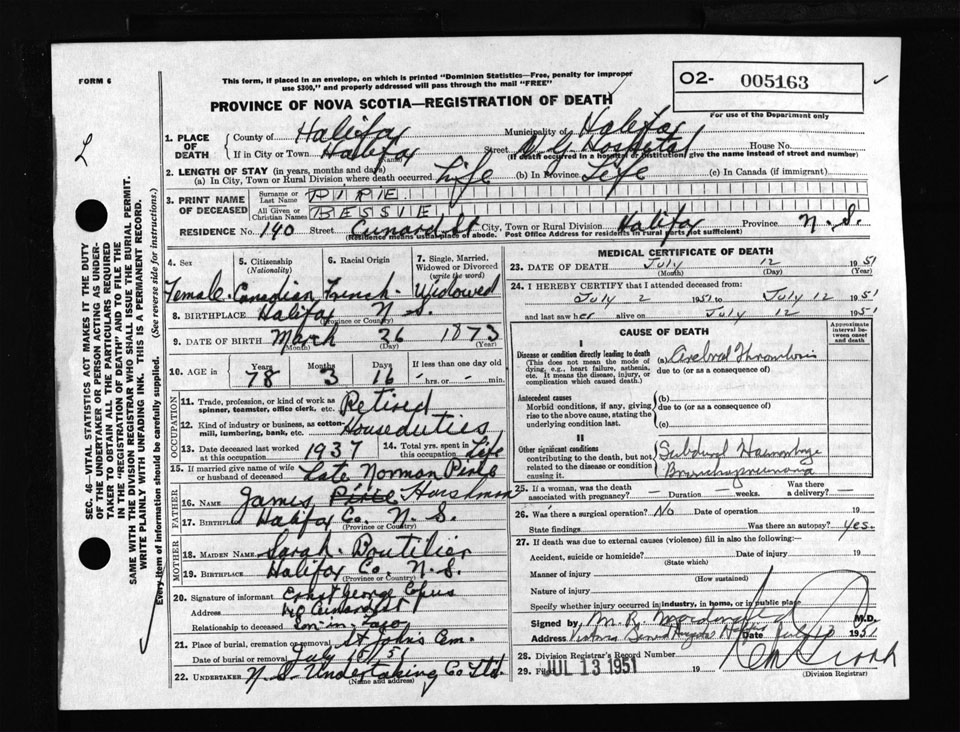 FORM 6
This form, if placed in an envelope, on which is printed "Dominion Statistics—Free, penalty for improper
use $300," and properly addressed will pass through the mail "FREE"
O2- 005163
For use of the Department only
PROVINCE OF NOVA SCOTIA—REGISTRATION OF DEATH
1. PLACE OF DEATH
County of Halifax Municipality of Halifax
If in City or Town Halifax (Name) Street V. G. Hospital House No.
(If death occurred in a hospital or institution, give the name instead of street and number)
2. LENGTH OF STAY (in years, months and days)
(a) In City, Town or Rural Division where death occurred Life (b) In Province Life (c) In Canada (if immigrant)
3. PRINT NAME OF DECEASED
Surname or Last Name PIRIE
All Given or Christian Names BESSIE
RESIDENCE No. 140 Street Cunard St City, Town or Rural Division Halifax Province N. S.
(Residence means usual place of abode. Post Office Address for residents in rural parts not sufficient)
4. Sex Female
5. Citizenship (Nationality) Canadian
6. Racial Origin French
7. Single, Married, Widowed or Divorced (write the word) Widowed
8. BIRTHPLACE Halifax N. S. (Province or Country)
9. DATE OF BIRTH March (Month) 26 (Day) 1873 (Year)
10. AGE in Years 78 Months 3 Days 16 If less than one day old hrs. or min.
OCCUPATION
11. Trade, profession, or kind of work as spinner, teamster, office clerk, etc. Retired
12. Kind of industry or business, as cotton-mill, lumbering, bank, etc. House duties
13. Date deceased last worked at this occupation 1937 14. Total yrs. spent in this occupation Life
15. If married give name of wife or husband of deceased Late Norman Pirie
FATHER
16. NAME James Pirie
17. BIRTHPLACE Halifax Co. N. S. (Province or Country)
MOTHER
18. MAIDEN NAME Sarah Boutilier
19. BIRTHPLACE Halifax Co. N. S. (Province or Country)
20. Signature of informant George
Address 140 Cunard St
Relationship to deceased Son-in-law
21. Place of burial, cremation or removal St Johns Cem.
Date of burial or removal July 51
22. UNDERTAKER N. S. Undertaking Co Ltd. (Name and address)
MEDICAL CERTIFICATE OF DEATH
23. DATE OF DEATH July (Month) 12 (Day) 1951 (Year)
24. I HEREBY CERTIFY that I attended deceased from:
July 2 1951 to July 12 1951
and last saw her alive on July 12 1951
CAUSE OF DEATH
Approximate interval between onset and death
I
Disease or condition directly leading to death (a) Cerebral Thrombosis
(This does not mean the mode of dying, e.g., heart failure, asthenia, etc. It means the disease, injury, or complication which caused death.)
due to (or as a consequence of)
Antecedent causes (b)
Morbid conditions, if any, giving rise to the above cause, stating the underlying condition last.
due to (or as a consequence of)
(c)
II
Other significant conditions contributing to the death, but not related to the disease or condition causing it.
Subdural Haemorrhage
Bronchopneumonia
25. If a woman, was the death associated with pregnancy? — Duration — weeks. Was there a delivery? —
26. Was there a surgical operation? No Date of operation 19
State findings Was there an autopsy? Yes.
27. If death was due to external causes (violence) fill in also the following:—
Accident, suicide or homicide? Date of injury 19
(State which)
Manner of injury
(How sustained)
Nature of injury
Specify whether injury occurred in industry, in home, or in public place
Signed by M.D.
Address Victoria General Hospital Halifax Date July 13 1951
28. Division Registrar's Record Number
29. Filed JUL 13 1951 19
(Division Registrar)
SEC. 46—VITAL STATISTICS ACT MAKES IT THE DUTY
OF THE UNDERTAKER OR PERSON ACTING AS UNDER-
TAKER TO OBTAIN ALL THE PARTICULARS REQUIRED
IN THE "REGISTRATION OF DEATH" AND TO FILE THE
SAME WITH THE DIVISION REGISTRAR WHO SHALL ISSUE THE BURIAL PERMIT.
WRITE PLAINLY WITH UNFADING INK. THIS IS A PERMANENT RECORD.
Every item of information should be carefully supplied. (See reverse side for instructions.)